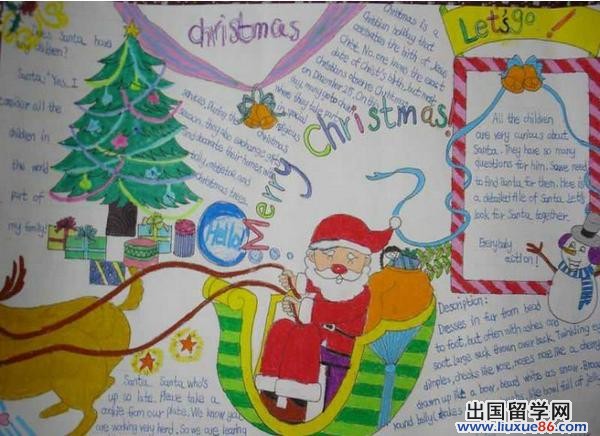 Does Santa have
children?
Santa: "Yes. I
consider all the
children in
the world
part of
my family!
christmas
Christmas is a
Christian holiday that
celebrates the birth of Jesus
Christ. No one knows the exact
date of Christ's birth, but most
Christians observe Christmas
on December 25. On this
day, many people
services. During the christmas
season, they also exchange gifts
and decorate their homes with
holly, mistletoe and
christmas trees.
Merry Christmas!
Hello!
Let's go !
All the children
are very curious about
Santa. They have so many
questions for him. Some need
to find Santa for them. Here is
a detailed file of Santa. Let's
look for Santa together.
Everybody
action!
Description:
Dresses in fur from head
to foot, but often with ashes and
soot, large sack thrown over back. Twinkling eyes
dimples, cheeks like rose, nose like a cherry
drawn up like a bow, beard white as snow. Broad
round belly, shakes like bowl full of jelly
Santa Santa, who's
up so late. Please take a
cookie from our plate. We know you
are working very hard. So we are leaving
出国留学网
www.liuxue86.com